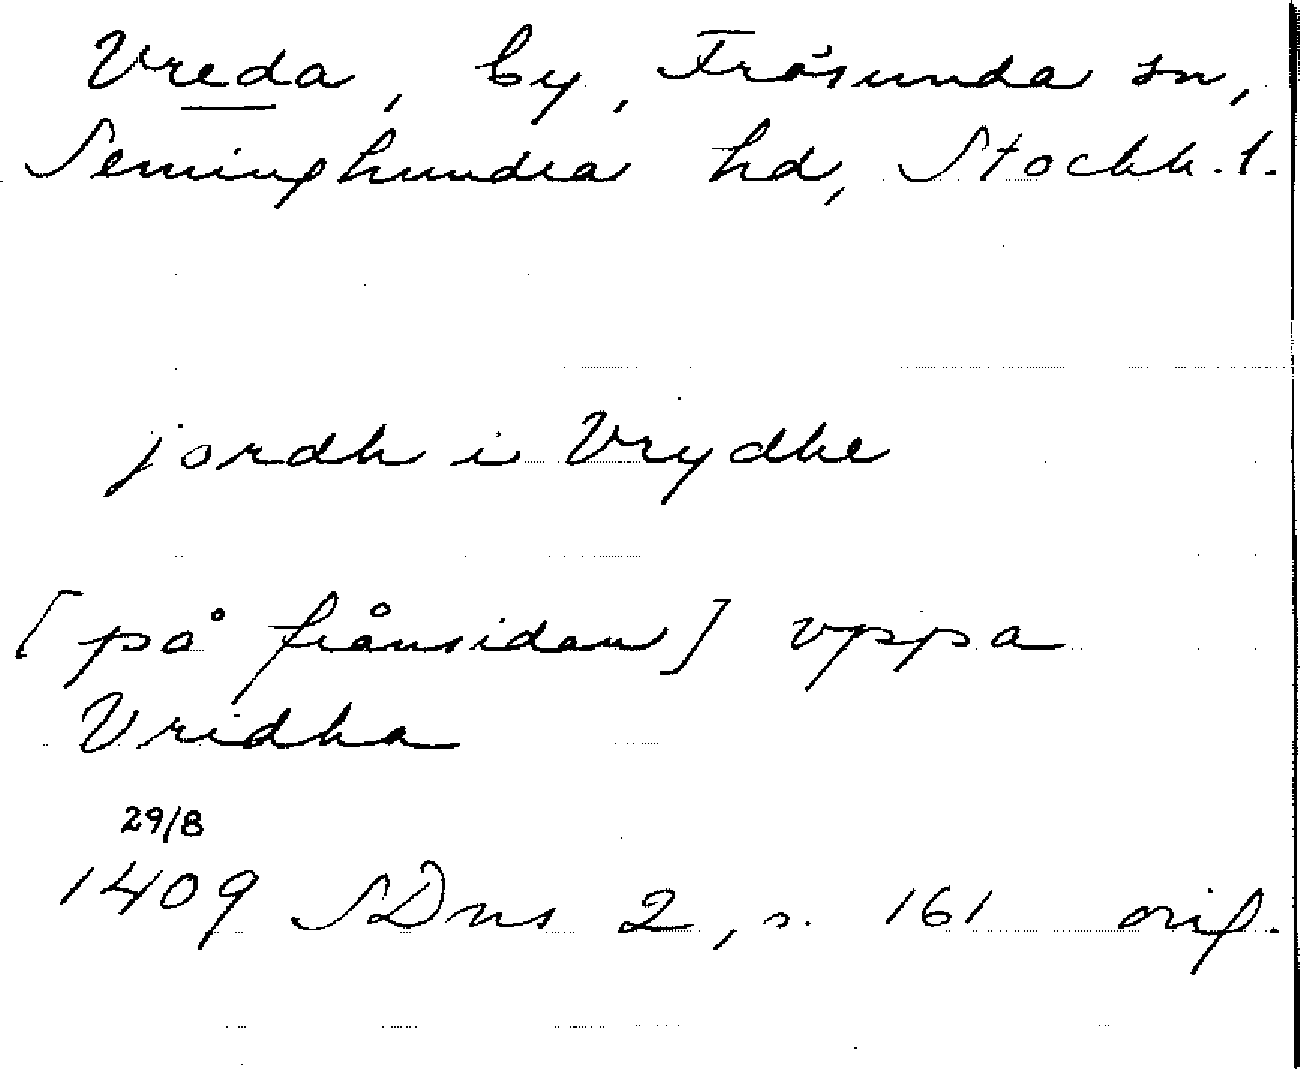 Vreda, by, Frösunda sn,
Seminghundra hd, Stockh. l.
jordh i Vrydhe
[på frånsidan] vppa
Vridha
29/8
1409 SDns 2, s. 161 orig.